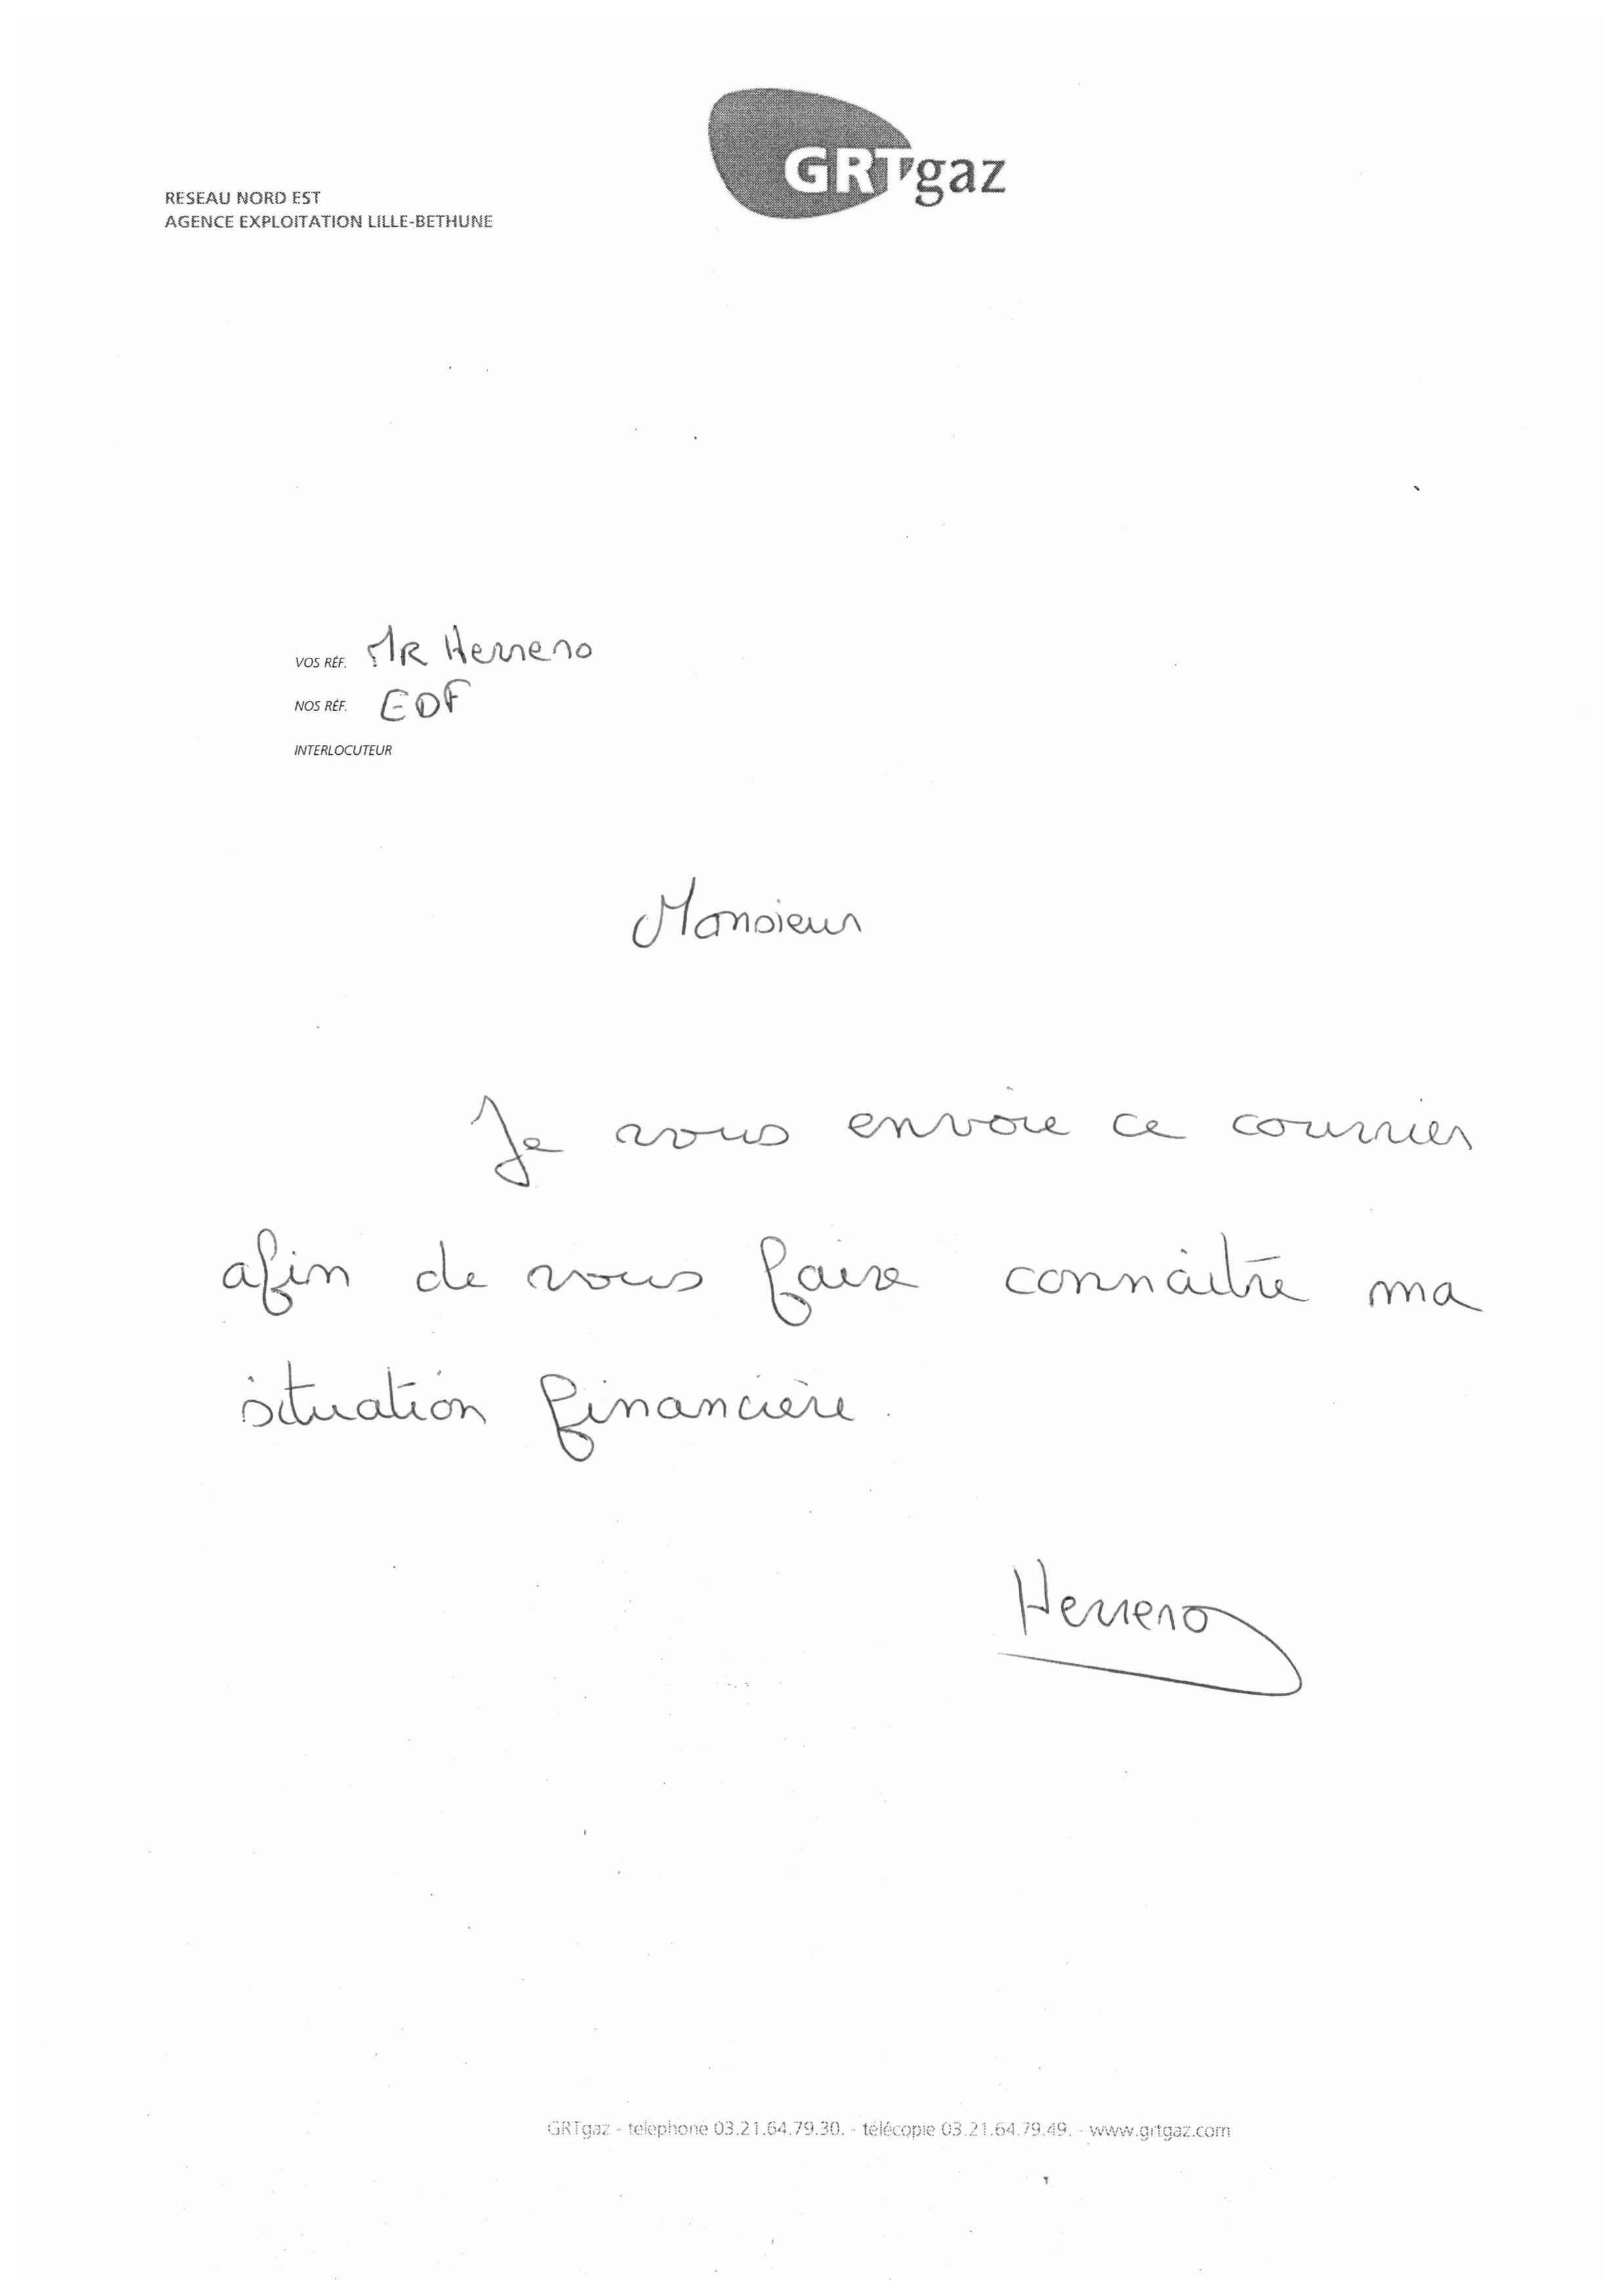 GRTgaz
RESEAU NORD EST
AGENCE EXPLOITATION LILLE-BETHUNE
VOS RÉF. MR Herrero
NOS RÉF. EDF
INTERLOCUTEUR
Monsieur
Je vous envoie ce courrier
afin de vous faire connaître ma
situation financière.
Herrero
GRTgaz - telephone 03.21.64.79.30. - télécopie 03.21.64.79.49. - www.grtgaz.com